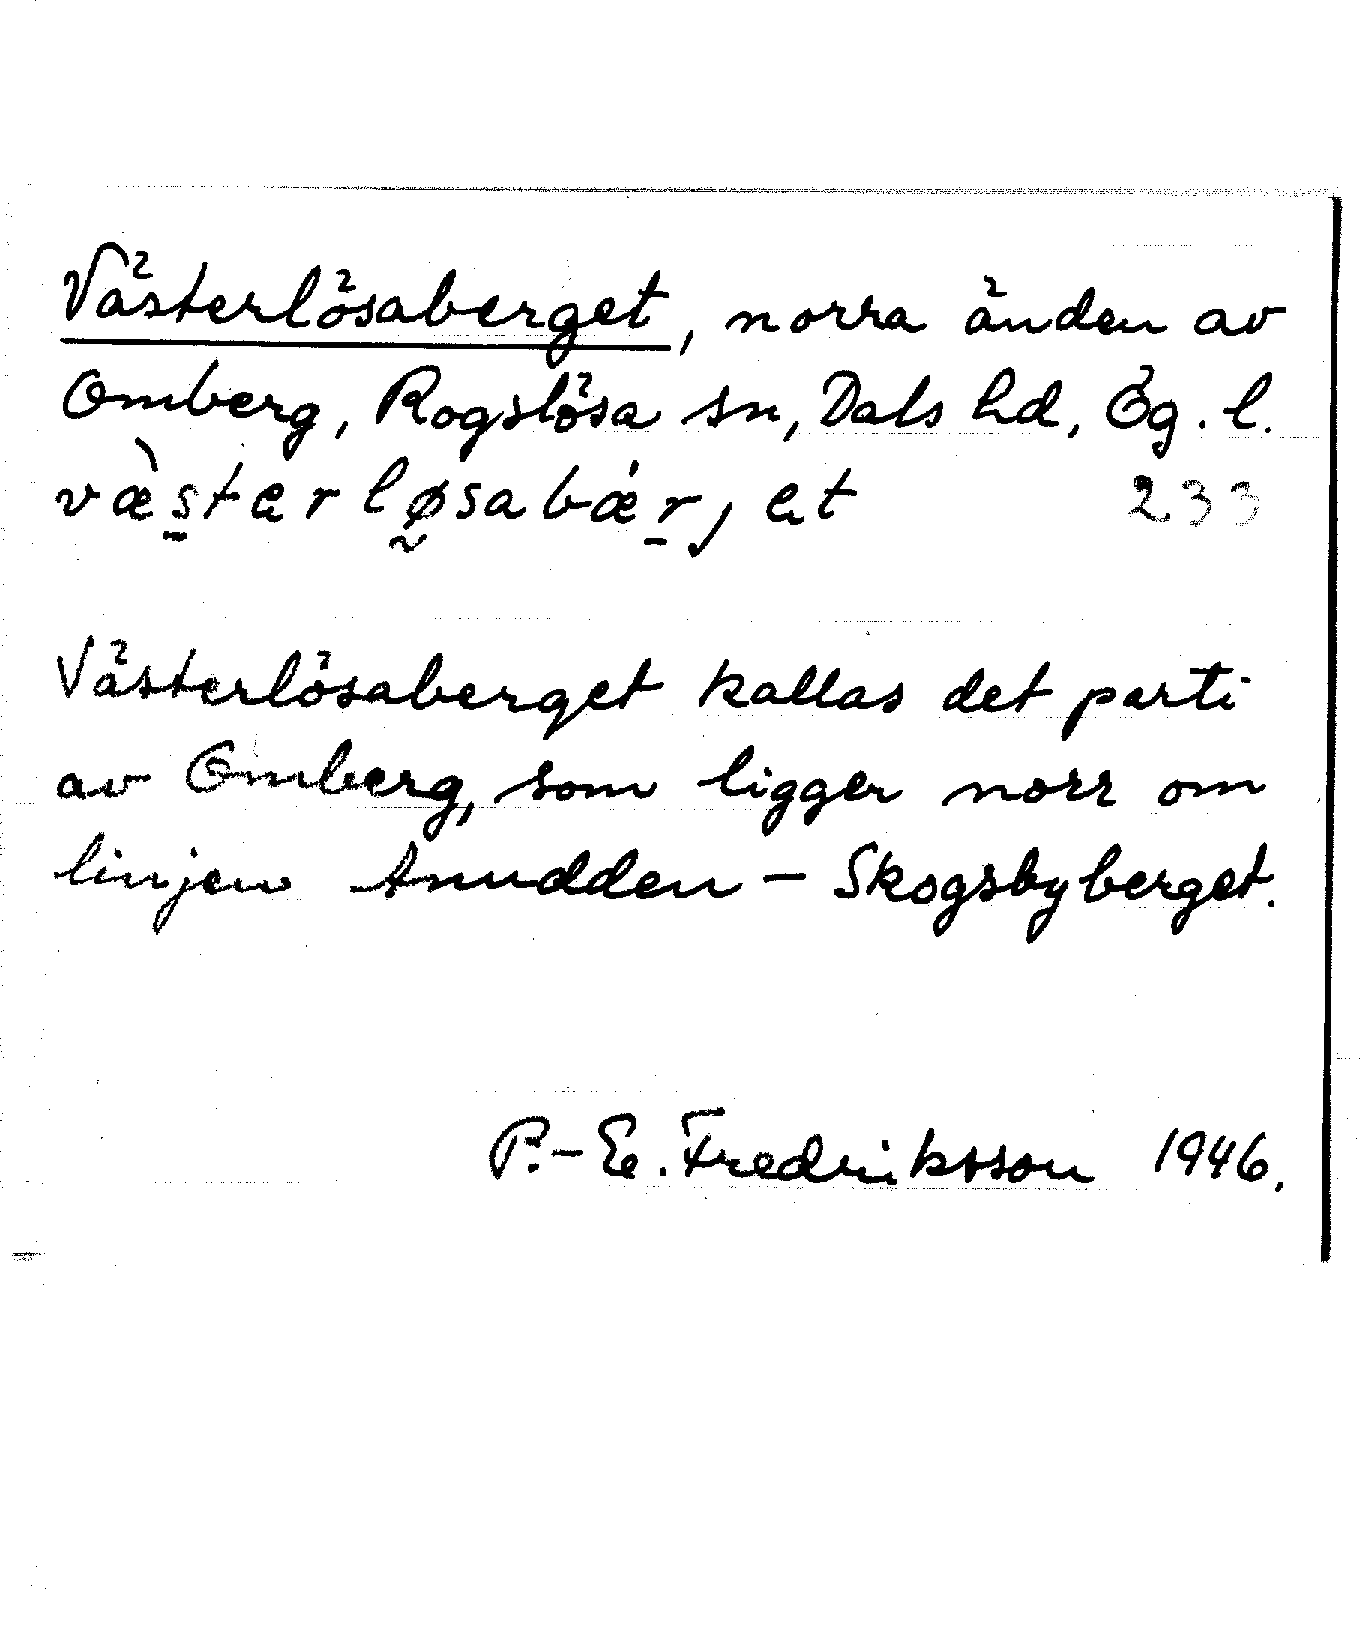 Västerlösaberget, norra änden av
Omberg, Rogslösa sn, Dals hd, Ög. l.
væ̀s̱tərlø̰sabǽṟjət 233
Västerlösaberget kallas det parti
av Omberg, som ligger norr om
linjen Anudden - Skogsbyberget.
P.-E. Fredriksson 1946.